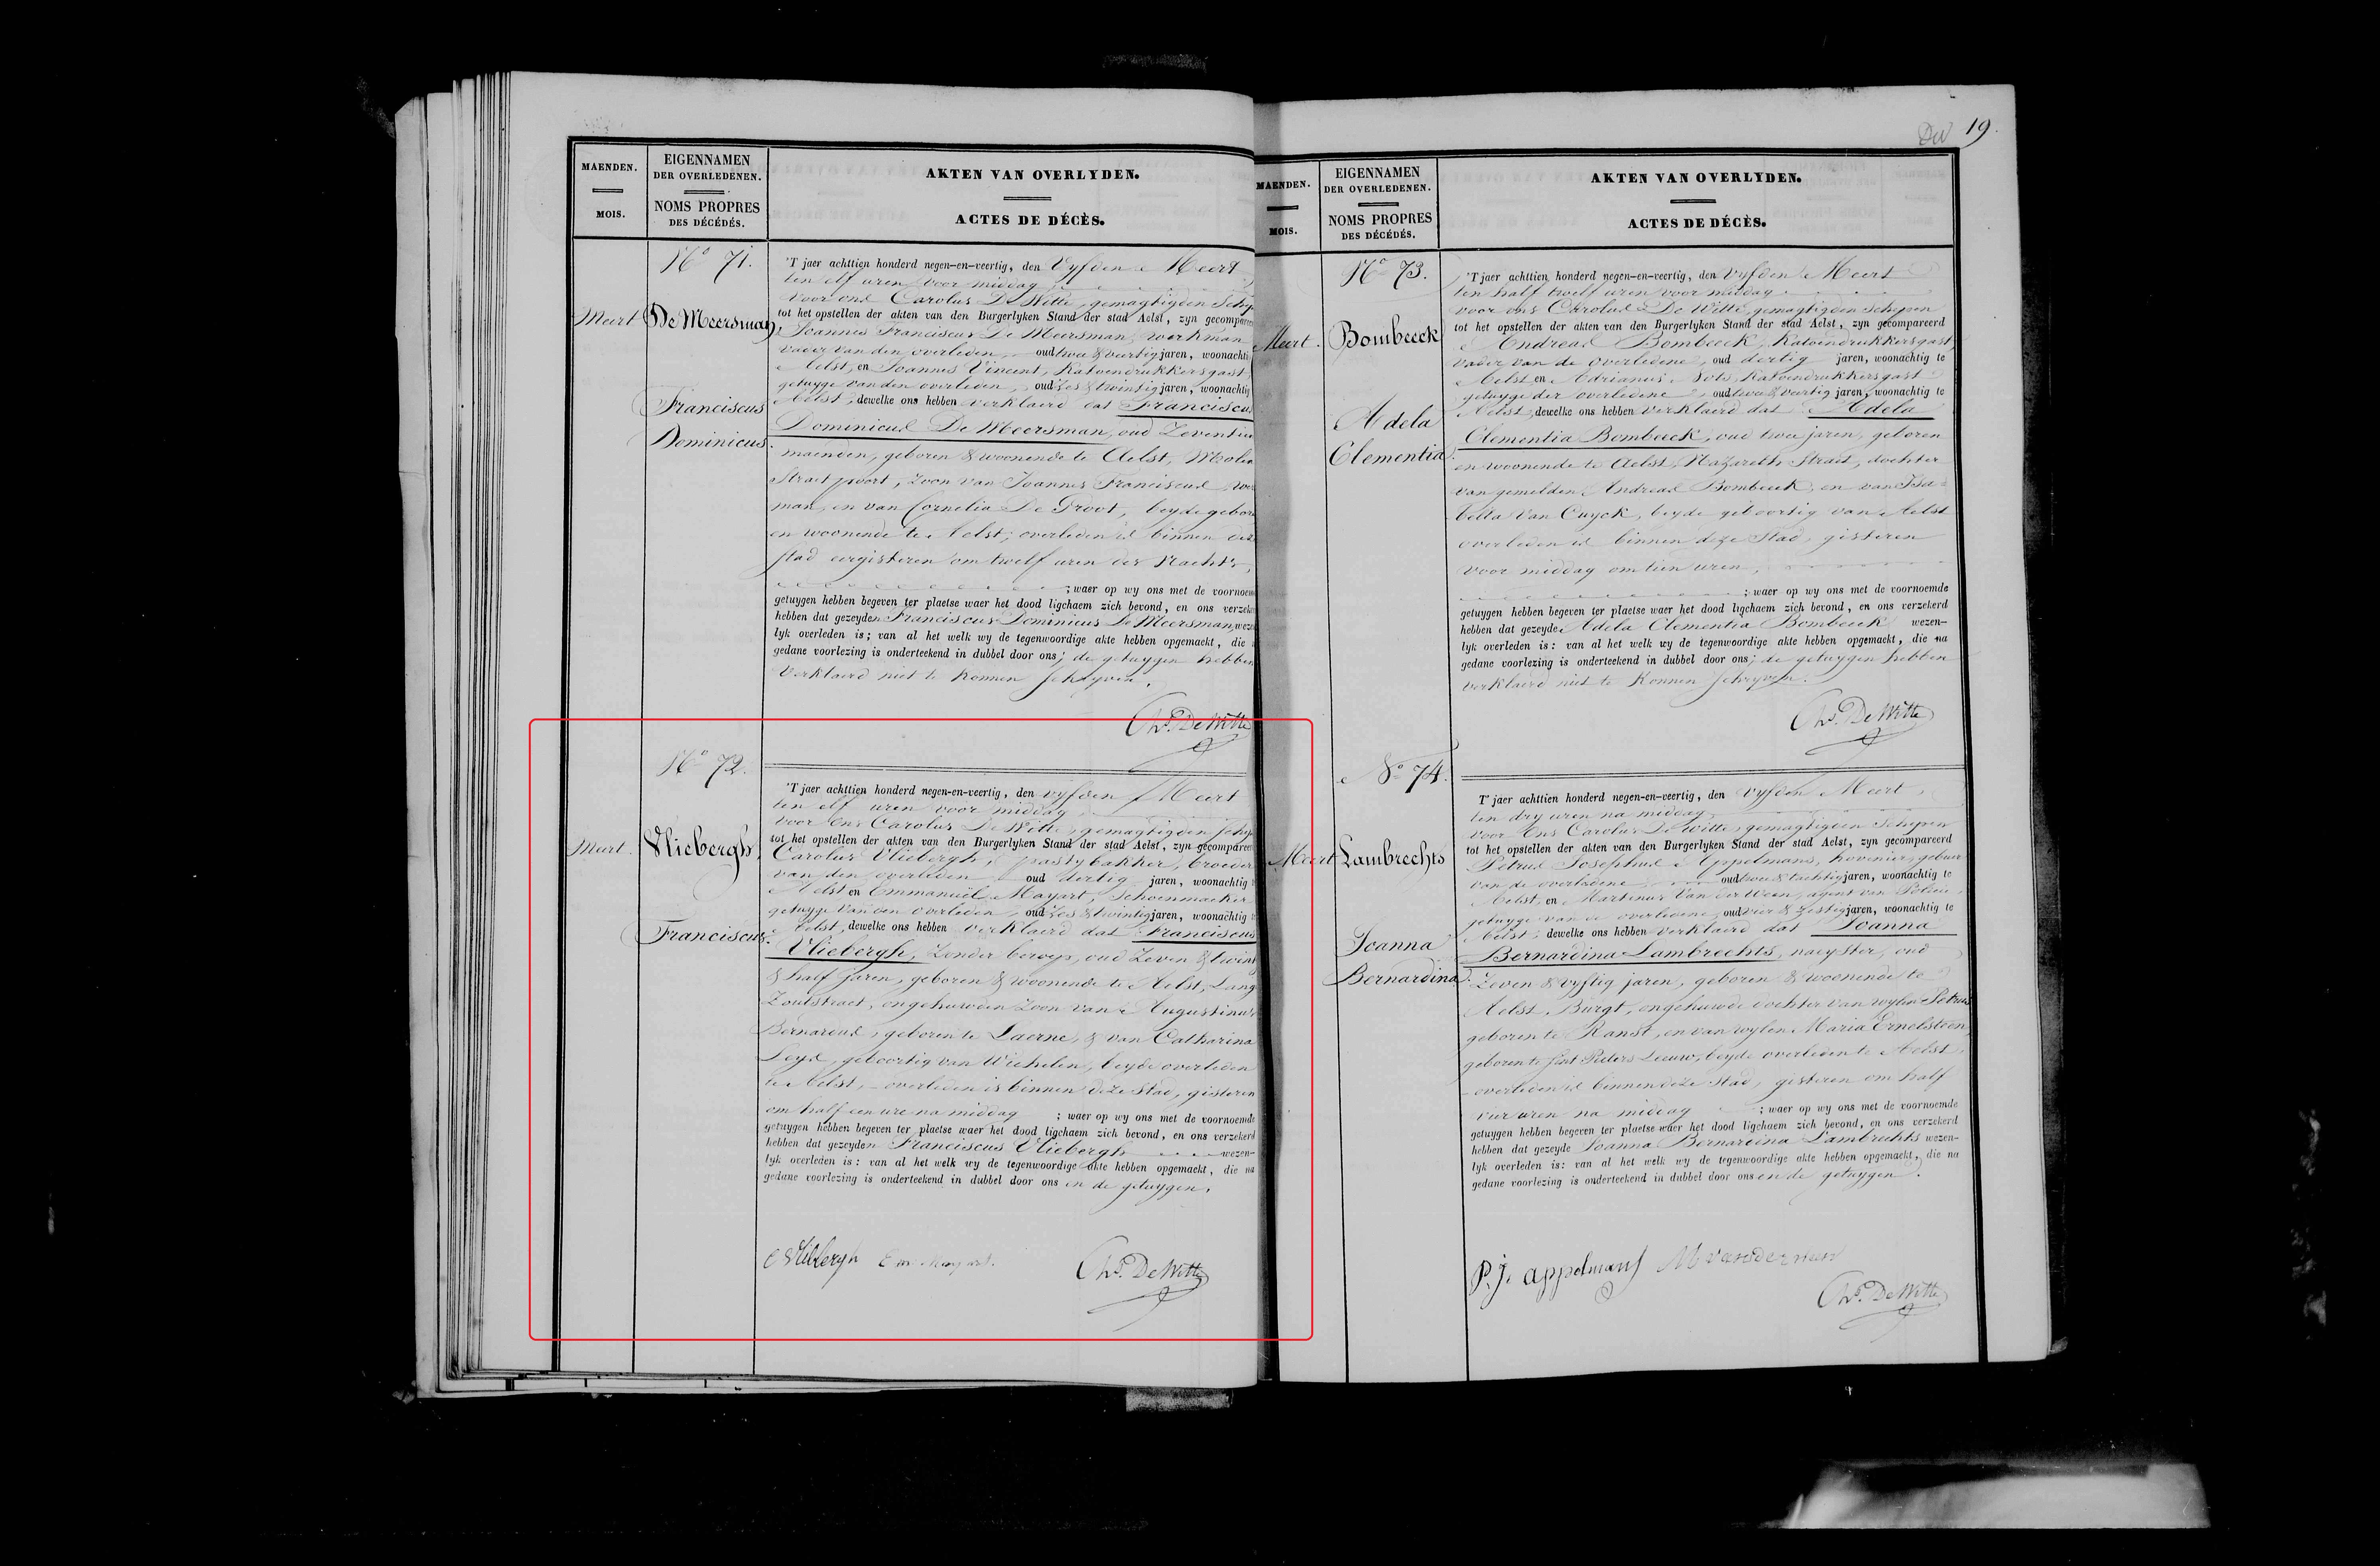 DW 19.
MAENDEN.
MOIS.
EIGENNAMEN
DER OVERLEDENEN.
NOMS PROPRES
DES DÉCÉDÉS.
AKTEN VAN OVERLYDEN.
ACTES DE DÉCÈS.
No 71.
Meert
De Meersman,
Franciscus
Dominicus.
'T jaer achttien honderd negen-en-veertig, den Vyfden Meert
ten elf uren voor middag
voor ons Carolus De Witte, gemagtigden Schep
tot het opstellen der akten van den Burgerlyken Stand der stad Aelst, zyn gecompareer
Joannes Franciscus De Meersman, werkman
vader van den overleden, oud twee & veertig jaren, woonachtig
Aelst, en Joannes Vincent, Katoendrukkersgast
getuyge van den overleden, oud zes & twintig jaren, woonachtig
Aelst, dewelke ons hebben verklaerd dat Franciscus
Dominicus De Meersman, oud Zeventien
maenden, geboren & woonende te Aelst, Molen
Straet poort, zoon van Joannes Franciscus, wer
man, en van Cornelia De Groot, beyde gebor
en woonende te Aelst; overleden is binnen deze
stad eergisteren om twelf uren des Nachts,
; waer op wy ons met de voornoem
getuygen hebben begeven ter plaetse waer het dood ligchaem zich bevond, en ons verzeke
hebben dat gezeyden Franciscus Dominicus De Meersman, weze
lyk overleden is; van al het welk wy de tegenwoordige akte hebben opgemaekt, die
gedane voorlezing is onderteekend in dubbel door ons; de getuygen hebben
verklaerd niet te konnen schryven.
Chs. De Witte
No 72.
Meert.
Vliebergh,
Franciscus.
'T jaer achttien honderd negen-en-veertig, den vyfden Meert
ten elf uren voor middag
voor Ons Carolus De Witte, gemagtigden schep
tot het opstellen der akten van den Burgerlyken Stand der stad Aelst, zyn gecompareer
Carolus Vliebergh, pastybakker, broeder
van den overleden oud dertig jaren, woonachtig
Aelst en Emmanuël Mayart, Schoenmaeker
getuyge van den overleden, oud zes & twintig jaren, woonachtig
Aelst, dewelke ons hebben verklaerd dat Franciscus
Vliebergh, zonder beroep, oud Zeven & twint
& half jaren, geboren & woonende te Aelst, Lang
Zoutstraet, ongehuwden zoon van Augustinus
Bernardus, geboren te Laerne, & van Catharina
Leys, geboortig van Wichelen, beyde overleden
te Aelst, overleden is binnen deze stad, gisteren
om half een ure na middag ; waer op wy ons met de voornoemde
getuygen hebben begeven ter plaetse waer het dood ligchaem zich bevond, en ons verzekerd
hebben dat gezeyden Franciscus Vliebergh wezen-
lyk overleden is: van al het welk wy de tegenwoordige akte hebben opgemaekt, die na
gedane voorlezing is onderteekend in dubbel door ons en de getuygen.
C Vliebergh Em Mayart. Chs. De Witte
MAENDEN.
MOIS.
EIGENNAMEN
DER OVERLEDENEN.
NOMS PROPRES
DES DÉCÉDÉS.
AKTEN VAN OVERLYDEN.
ACTES DE DÉCÈS.
No 73.
Meert.
Bombeeck
Adela
Clementia.
'T jaer achttien honderd negen-en-veertig, den vyfden Meert
ten half twelf uren voor middag
voor ons Carolus De Witte, gemagtigden schepen
tot het opstellen der akten van den Burgerlyken Stand der stad Aelst, zyn gecompareerd
Andreas Bombeeck, Katoendrukkersgast,
vader van de overledene, oud dertig jaren, woonachtig te
Aelst en Adrianus Sots, Katoendrukkersgast
getuyge der overledene, oud twee & veertig jaren, woonachtig te
Aelst, dewelke ons hebben verklaerd dat Adela
Clementia Bombeeck, oud twee jaren, geboren
en woonende te Aelst, Nazareth Straet, dochter
van gemelden Andreas Bombeeck, en van Isa=
bella Van Cuyck, beyde geboortig van Aelst
overleden is binnen deze Stad, gisteren
voor middag om tien uren,
; waer op wy ons met de voornoemde
getuygen hebben begeven ter plaetse waer het dood ligchaem zich bevond, en ons verzekerd
hebben dat gezeyde Adela Clementia Bombeeck wezen-
lyk overleden is: van al het welk wy de tegenwoordige akte hebben opgemaekt, die na
gedane voorlezing is onderteekend in dubbel door ons; de getuygen hebben
verklaerd niet te konnen schryven.
Chs. De Witte
No 74.
Meert
Lambrechts
Joanna
Bernardina.
T' jaer achttien honderd negen-en-veertig, den vyfden Meert,
ten dry uren na middag
voor Ons Carolus De Witte, gemagtigden Schepen
tot het opstellen der akten van den Burgerlyken Stand der stad Aelst, zyn gecompareerd
Petrus Josephus Appelmans, hovenier, gebuer
van de overledene oud twee & tachtig jaren, woonachtig te
Aelst, en Martinus Van der Ween, agent van Policie
getuyge van de overledene, oud vier & zestig jaren, woonachtig te
Aelst; dewelke ons hebben verklaerd dat Joanna
Bernardina Lambrechts, naeyster, oud
Zeven & vyftig jaren, geboren & woonende te
Aelst, Burgt, ongehuwde dochter van wylen Petrus
geboren te Ranst, en van wylen Maria Ernelsteen,
geboren te Sint Pieters Leeuw, beyde overleden te Aelst,
overleden is binnen deze Stad, gisteren om half
vier uren na middag ; waer op wy ons met de voornoemde
getuygen hebben begeven ter plaetse waer het dood ligchaem zich bevond, en ons verzekerd
hebben dat gezeyde Joanna Bernardina Lambrechts wezen-
lyk overleden is: van al het welk wy de tegenwoordige akte hebben opgemaekt, die na
gedane voorlezing is onderteekend in dubbel door ons en de getuygen.
P. J. appelmans M vanderween
Chs. De Witte